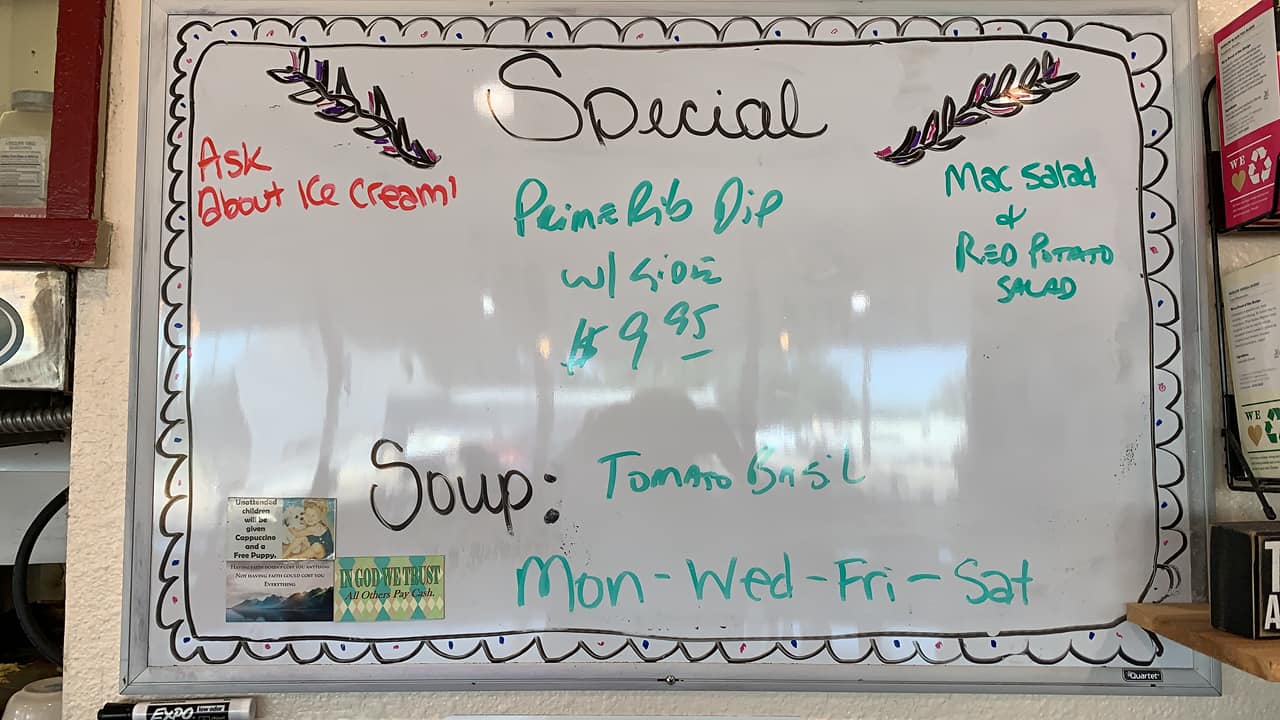 Special
Ask
About Ice Cream!
Prime Rib Dip
w/ Side
$9 95
Mac Salad
&
Red Potato
Salad
Soup: Tomato Basil
Mon-Wed-Fri-Sat
Unattended
children
will be
given
Cappuccino
and a
Free Puppy.
Having faith doesn't cost you anything
Not having faith could cost you
Everything
IN GOD WE TRUST
All Others Pay Cash.
Quartet
EXPO low odor
WE
WE